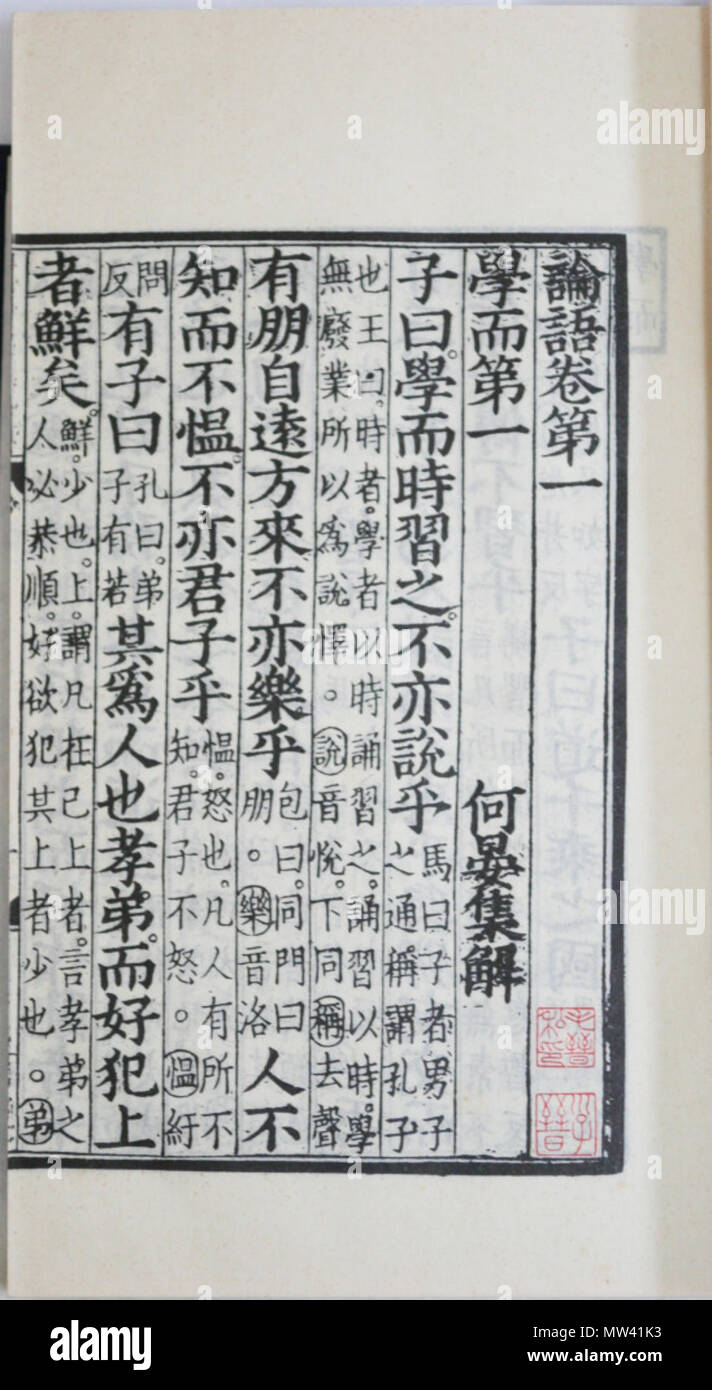 論語卷第一
學而第一 何晏集解
子曰。學而時習之。不亦說乎馬曰子者男子之通稱。謂孔子
也王曰。時者。學者以時誦習之。誦習以時。學無廢業所以為說懌。說音悅。下同稱去聲
有朋自遠方來不亦樂乎包曰。同門曰朋。樂音洛人不
知而不慍。不亦君子乎慍。怒也。凡人有所不知。君子不怒。慍紆
問反有子曰孔曰。弟子有若其爲人也孝弟。而好犯上
者鮮矣。鮮。少也。上。謂凡在己上者。言孝弟之人必恭順。好欲犯其上者少也。弟
毛晉私印
子晉
alamy
Image ID: MW41K3
www.alamy.com